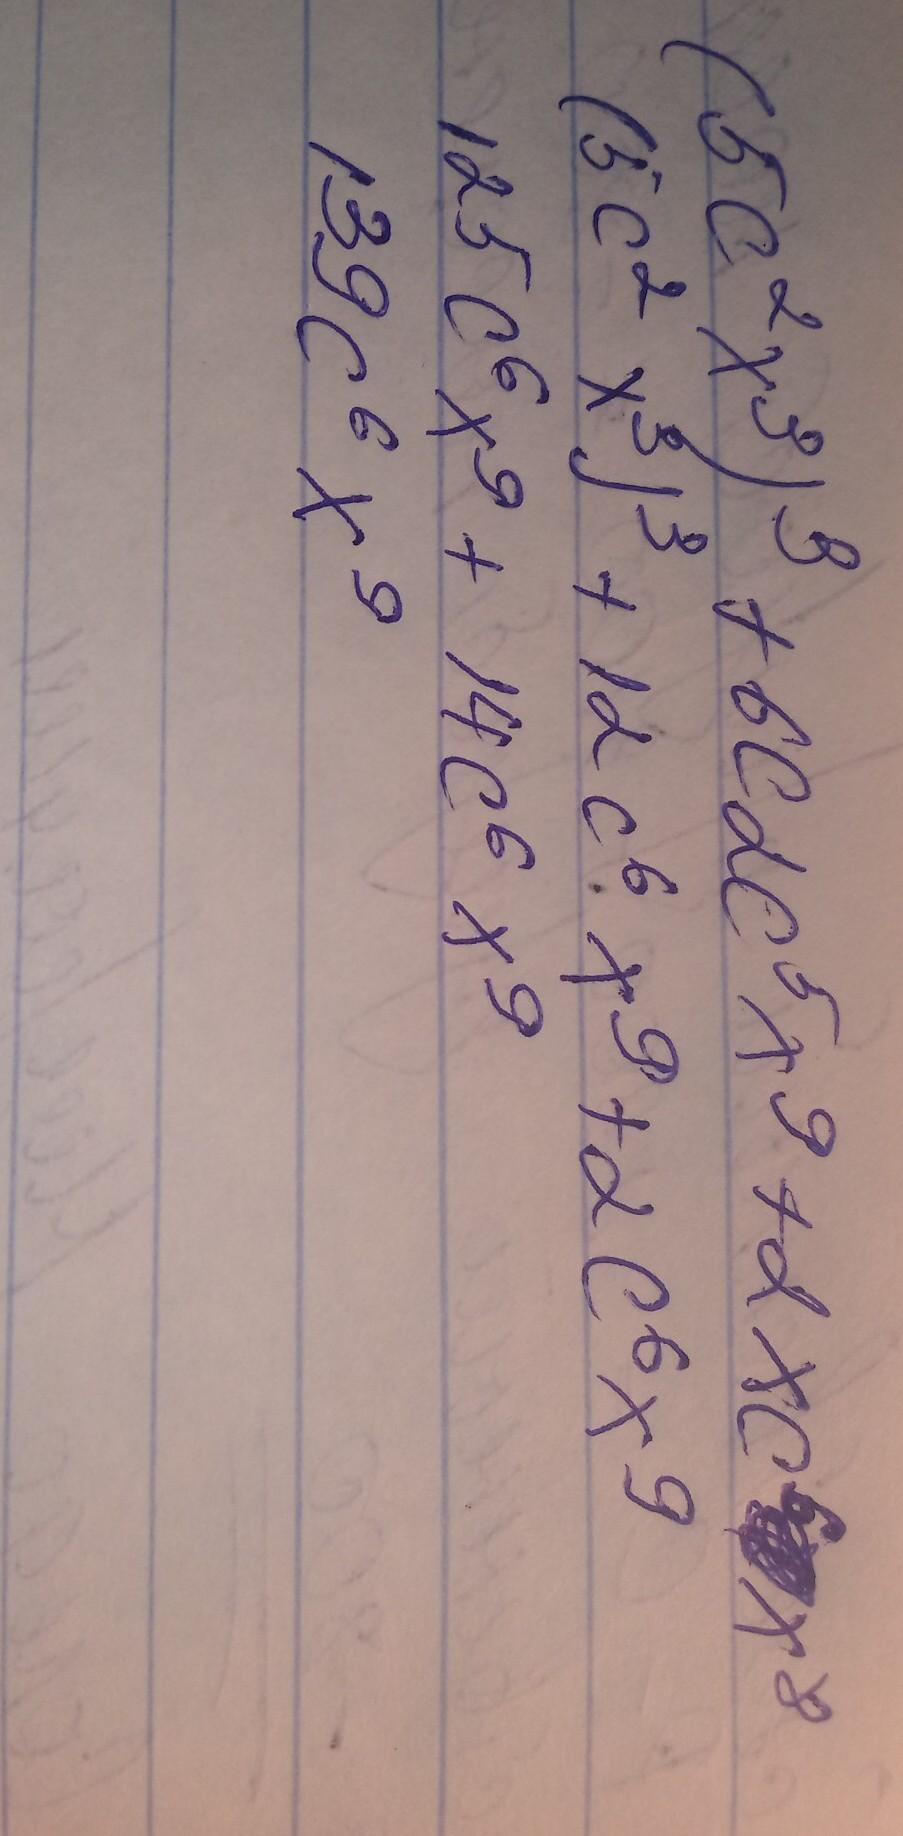 (5c²x³)³ + 6c2c⁵x⁹ + 2xc⁶x⁸
(5c²x³)³ + 12c⁶x⁹ + 2c⁶x⁹
125c⁶x⁹ + 14c⁶x⁹
139c⁶x⁹